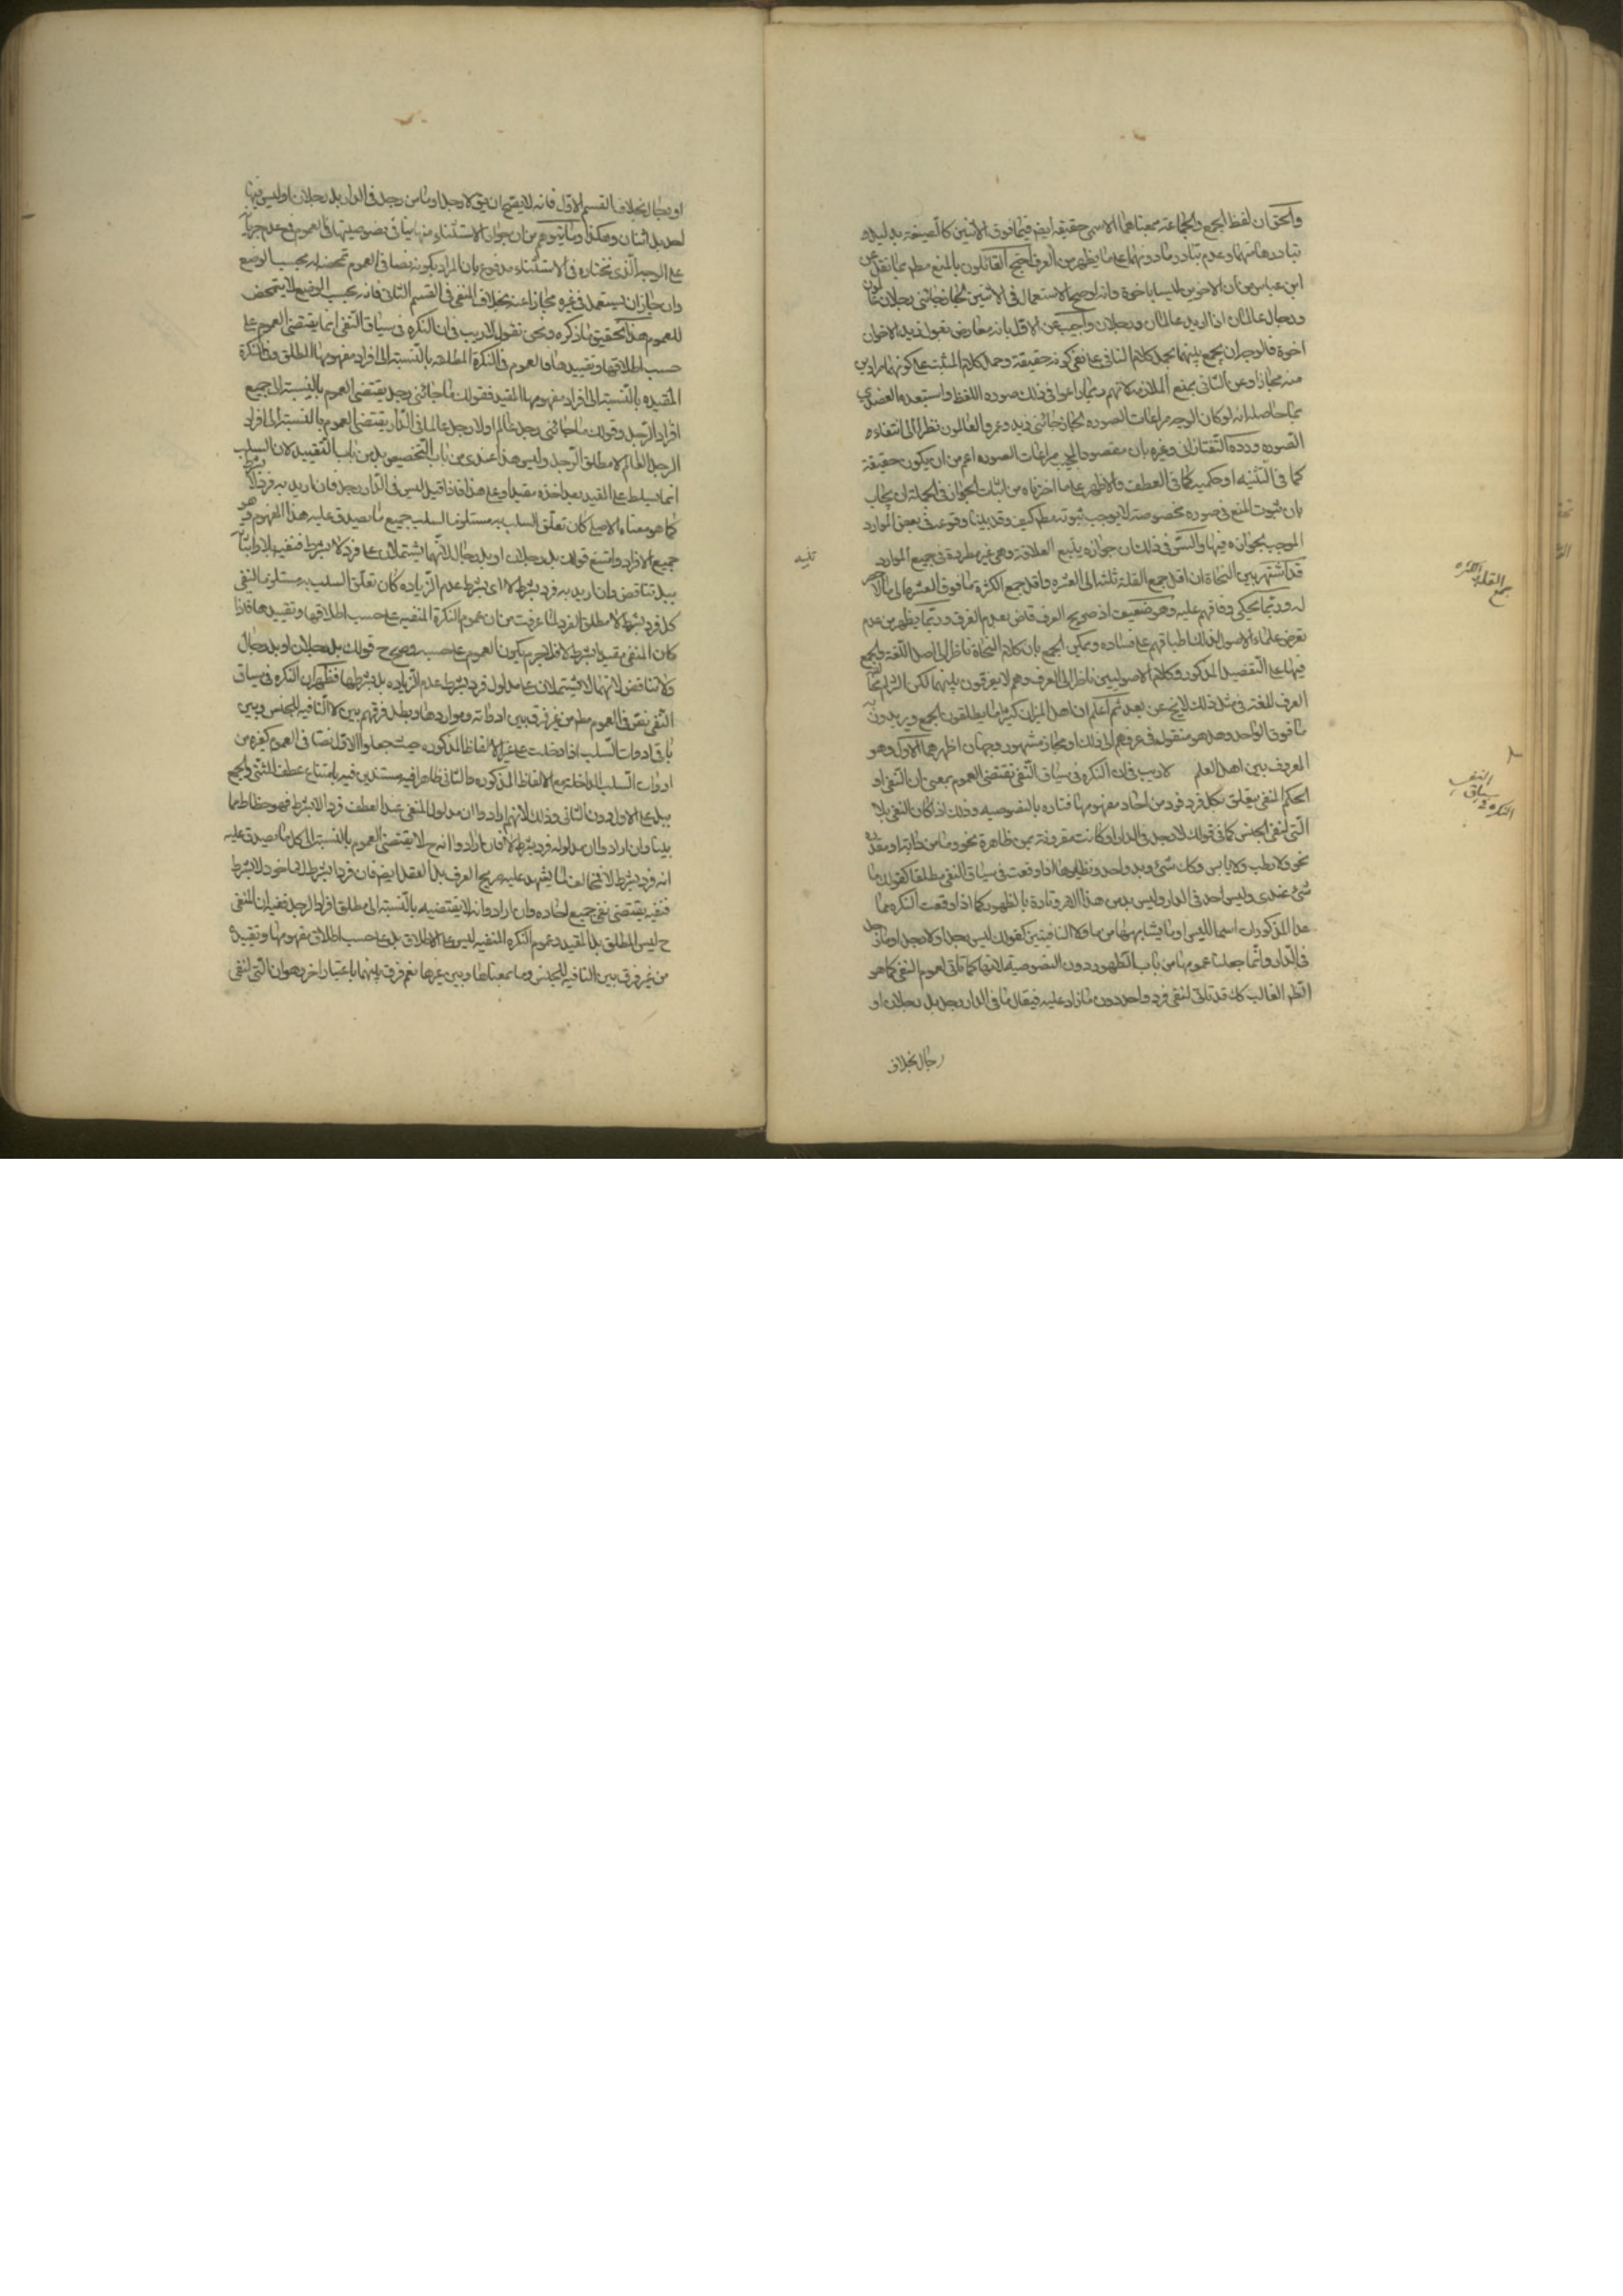 والحق ان لفظ الجمع والجماعة بمعناهما الاسمى حقيقة ايضا فيما فوق الاثنين كالصيغة بدليل
تبادرهما منهما وعدم تبادر ما دونهما على ما يظهر من العرف احتج القائلون بالمنع مطم بما نقل عن
ابن عباس من ان الاخوين ليسا باخوة وانه لو صح الاستعمال فى الاثنين لجاز جائنى رجلان عالمون
ورجال عالمان اذا اريد عالمان ورجلان واجيب عن الاول بانه معارض بقول زيد الاخوان
اخوة فالوجه ان يجمع بينهما بحمل كلام النافى على نفى كونه حقيقة وحمل كلام المثبت على كونهما مرادين
منه مجازا وعن الثانى بمنع الملازمة لانهم ربما راعوا فى ذلك صورة اللفظ واستبعده العضدى
بما حاصله انه لو كان الوجه مراعات الصورة لجاز جائنى زيد وعمرو العالمون نظرا الى انتفاء
الصورة ورده التفتازانى وغيره بان مقصود المجيب مراعات الصورة اعم من ان يكون حقيقة
كما فى التثنية او حكمية كما فى العطف والاظهر على ما اخترناه من اثبات الجواز فى الجملة ان يجاب
بان ثبوت المنع فى صورة مخصوصة لا يوجب ثبوته مطم كيف وقد بينا وقوعه فى بعض الموارد
الموجب لجوازه فيها والسر فى ذلك ان جوازه يتبع العلاقة وهى غير مطردة فى جميع الموارد
تنبيه
قد اشتهر بين النحاة ان اقل جمع القلة ثلثة الى العشرة واقل جمع الكثرة ما فوق العشرة الى ما لا حصر
جمع القلة والكثرة
له وربما يحكى وفاقهم عليه وهو ضعيف اذ صريح العرف قاض بعدم الفرق وربما يظهر من عدم
تعرض علماء الاصول لذلك اطباقهم على فساده ويمكن الجمع بان كلام النحاة ناظر الى اصل اللغة والجمع
فيها على التفصيل المذكور وكلام الاصوليين ناظر الى العرف وهم لا يفرقون بينهما لكن التزام
العرف للغة فى مثل ذلك لا يخ عن بعد ثم اعلم ان اهل الميزان كثيرا ما يطلقون الجمع ويريدون به
ما فوق الواحد وهل هو منقول فى عرفهم الى ذلك او مجاز مشهور وجهان اظهرهما الاول وهو
المعروف بين اهل العلم لا ريب فى ان النكرة فى سياق النفى تقتضى العموم بمعنى ان النفى او
النكرة فى سياق النفى
الحكم المنفى يتعلق بكل فرد فرد من احاد مفهومها فتارة بالنصوصية وذلك اذا كان النفى بلا
التى لنفى الجنس كما فى قولك لا رجل فى الدار او كانت مقرونة بمن ظاهرة نحو وما من دابة او مقدرة
نحو ولا رطب ولا يابس وكان شئ وبد واحد ونظايرها اذا وقعت فى سياق النفى مطلقا كقولك ما
شئ عندى وليس احد فى الدار وليس بد من هذا الامر وتارة بالظهور كما اذا وقعت النكرة مما
عدا المذكورات اسما لليس او ما يشابهها من ما ولا النافيتين كقولك ليس رجل او لا رجل او ما رجل
فى الدار وانما جعلنا عمومها من باب الظهور دون النصوصية لانها كما تاتى لعموم النفى كما هو
الظم الغالب كك قد تاتى لنفى فرد واحد دون ما زاد عليه فيقال ما فى الدار رجل بل رجلان او
رجال بخلاف
او رجال بخلاف القسم الاول فانه لا يصح ان يق لا رجل او ما من رجل فى الدار بل رجلان او ليس فيها
احد بل اثنان وهكذا وما يتوهم من ان جواز الاستثناء منها ينافى نصوصيتها فى العموم فى عدم جريانه
على الوجه الذى نختاره فى الاستثناء مدفوع بان المراد بكونه نصا فى العموم تمحضه له بحسب الوضع
وان جاز ان يستعمل فى غيره مجازا عنه بخلاف النفى فى القسم الثانى فانه بحسب الوضع لا يتمحض
للعموم هذا تحقيق ما ذكره ونحن نقول لا ريب فى ان النكرة فى سياق النفى انما يقتضى العموم على
حسب اطلاقها وتقييدها فالعموم فى النكرة المطلقة بالنسبة الى افراد مفهومها المطلق وفى النكرة
المقيدة بالنسبة الى افراد مفهومها المقيد فقولك ما جائنى رجل يقتضى العموم بالنسبة الى جميع
افراد الرجل وقولك ما جائنى رجل عالم او لا رجل عالما فى الدار يقتضى العموم بالنسبة الى افراد
الرجل العالم لا مطلق الرجل وليس هذا عندى من باب التخصيص بل من باب التقييد لان السلب
انما يسلط على المقيد بعد اخذه مقيدا وعلى هذا فاذا قيل ليس فى الدار رجل فان اريد به فرد لا بشرط
كما هو معناه الاصلى كان تعلق السلب به مستلزما لسلب جميع ما يصدق عليه هذا المفهوم وهو
جميع الافراد وامتنع قولك بل رجلان او بل رجال لانهما يشتملان على فرد لا بشرط فنفيه اولا واثباته
ببل تناقض وان اريد به فرد بشرط لا اى بشرط عدم الزيادة كان تعلق السلب به مستلزما لنفى
كل فرد بشرط لا مطلق الفرد لما عرفت من ان عموم النكرة المنفية على حسب اطلاقها وتقييدها فاذا
كان المنفى مقيدا بشرط لا فلا جرم يكون العموم على حسبه وصح ح قولك بل رجلان او بل رجال
ولا تناقض لانهما لا يشتملان على مدلول فرد بشرط عدم الزيادة بل بشرطها فظهر ان النكرة فى سياق
النفى نص فى العموم مطم من غير فرق بين ادواته ومواردها وبطل فرقهم بين لا النافية للجنس وبين
باقى ادوات السلب اذا دخلت على غير الالفاظ المذكورة حيث جعلوا الاول نصا فى العموم كغيره من
ادوات السلب الداخلة مع الالفاظ المذكورة والثانى ظاهرا فيه مستندين فيه بامتناع عطف المثنى والجمع
ببل على الاول دون الثانى وذلك لانهم ان ارادوا ان مدلول المنفى عند العطف فرد لا بشرط فهو خطاء لما
بينا وان ارادوا ان مدلوله فرد بشرط لا فان ارادوا انه ح لا يقتضى العموم بالنسبة الى كل ما يصدق عليه
انه فرد بشرط لا فمخالف لما يشهد عليه صريح العرف بل العقل ايضا فان فردا بشرط لا ماخوذ لا بشرط
فنفيه يقتضى نفى جميع احاده وان ارادوا انه لا يقتضيه بالنسبة الى مطلق افراد الرجل ففيه ان المنفى
ح ليس المطلق بل المقيد وعموم النكرة المنفية ليس على الاطلاق بل على حسب اطلاق مفهومها وتقييده
من غير فرق بين النافية للجنس وما بمعناها وبين غيرها نعم فرق بينهما باعتبار اخر وهو ان التى لنفى